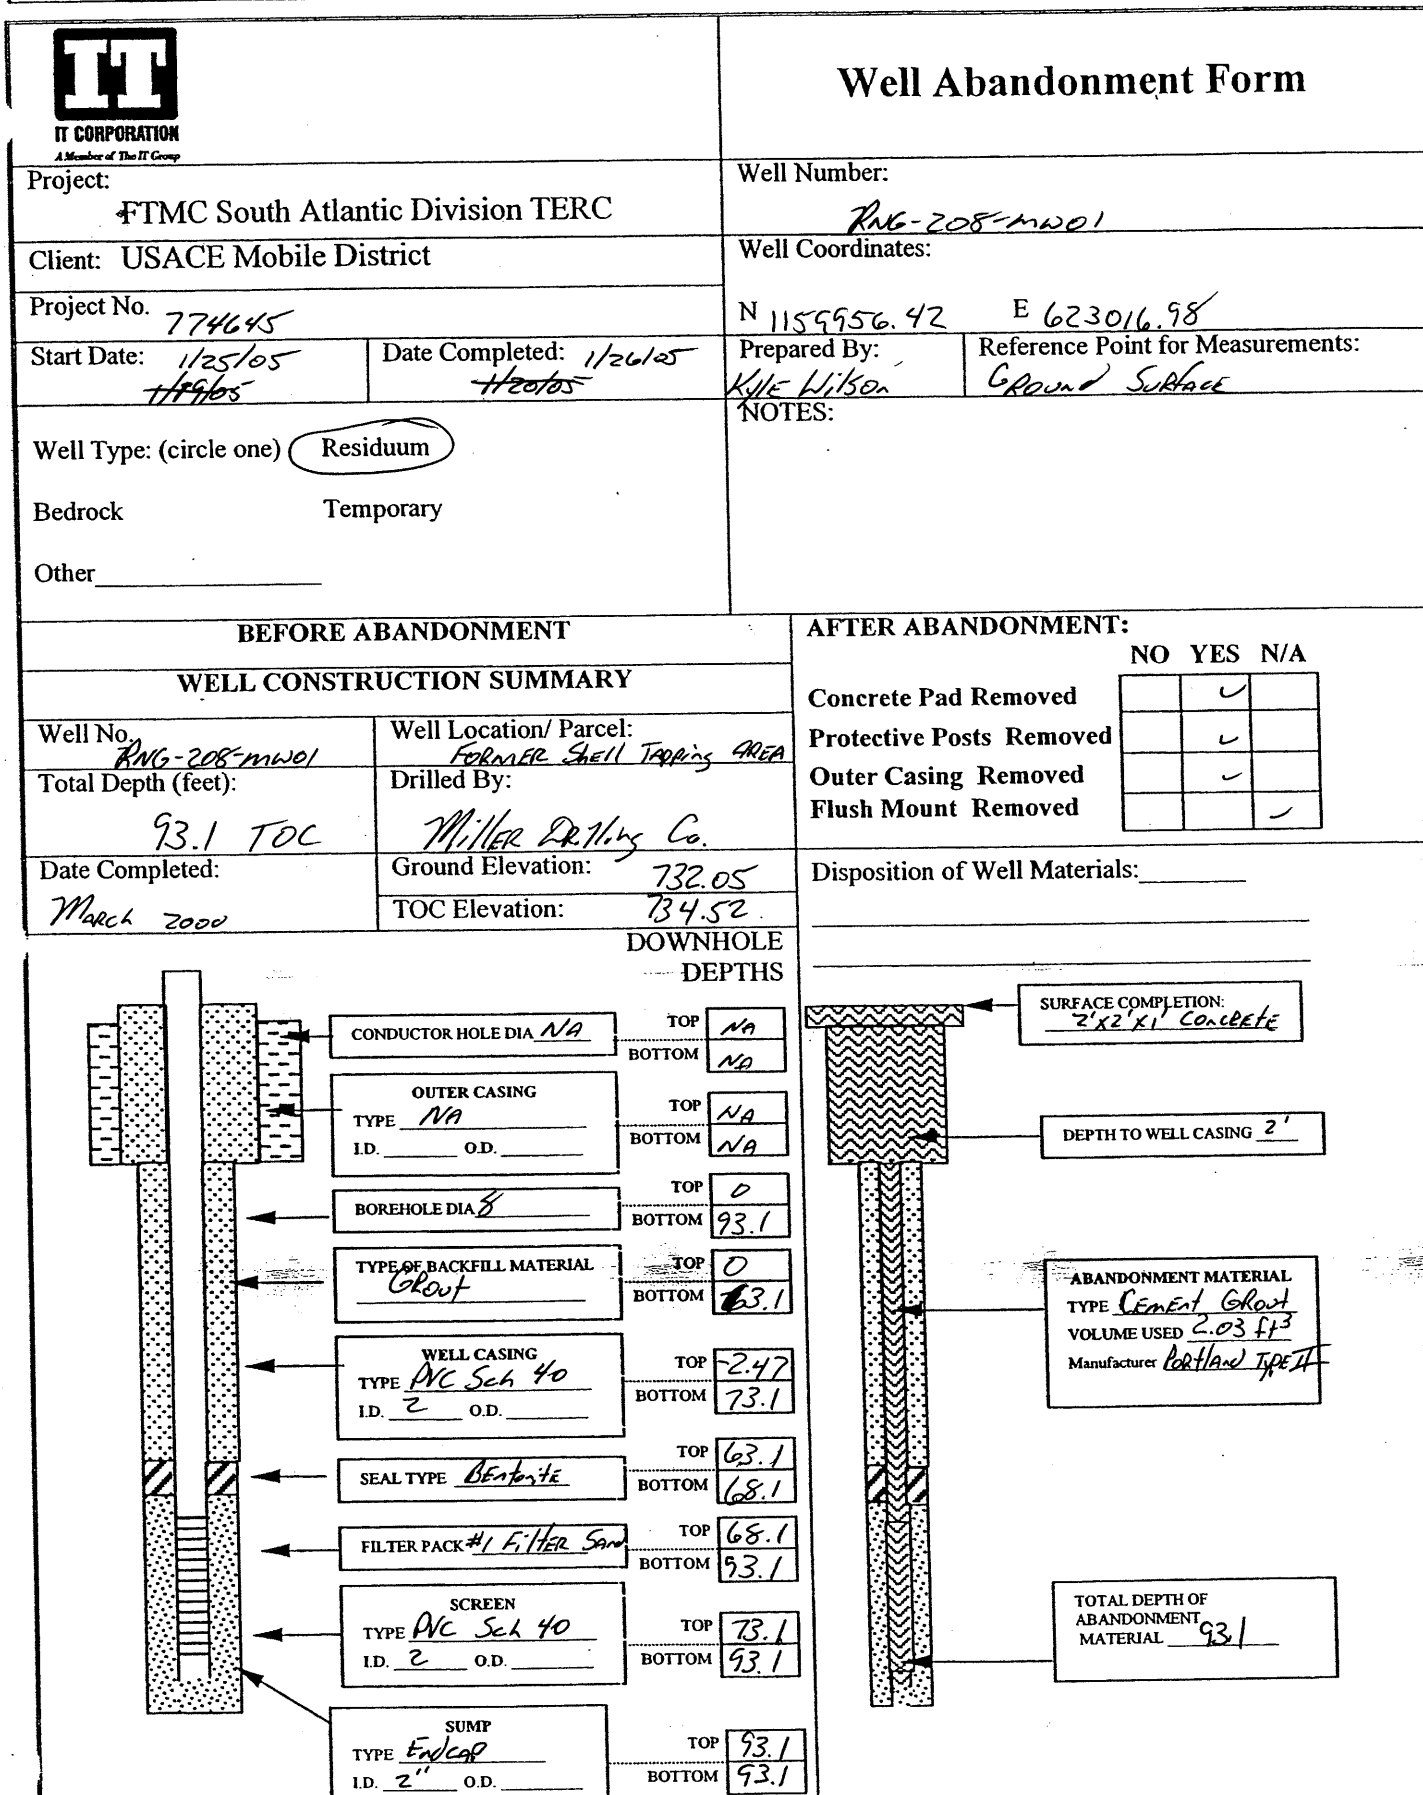 IT
IT CORPORATION
A Member of The IT Group
Well Abandonment Form
Project:
FTMC South Atlantic Division TERC
Well Number:
RNG-208-MW01
Client: USACE Mobile District
Well Coordinates:
N 1159956.42 E 623016.98
Project No. 774645
Start Date: 1/25/05
1/19/05
Date Completed: 1/26/05
1/20/05
Prepared By:
Kyle Wilson
Reference Point for Measurements:
Ground Surface
Well Type: (circle one) Residuum
Bedrock Temporary
Other
NOTES:
BEFORE ABANDONMENT
WELL CONSTRUCTION SUMMARY
Well No.
RNG-208-MW01
Well Location/ Parcel:
Former Shell Tapping Area
Total Depth (feet):
93.1 TOC
Drilled By:
Miller Drilling Co.
Date Completed:
March 2000
Ground Elevation: 732.05
TOC Elevation: 734.52
AFTER ABANDONMENT:
NO YES N/A
Concrete Pad Removed
Protective Posts Removed
Outer Casing Removed
Flush Mount Removed
Disposition of Well Materials:
DOWNHOLE
DEPTHS
CONDUCTOR HOLE DIA NA
TOP NA
BOTTOM NA
OUTER CASING
TYPE NA
I.D. O.D.
TOP NA
BOTTOM NA
BOREHOLE DIA 8
TOP 0
BOTTOM 93.1
TYPE OF BACKFILL MATERIAL
Grout
TOP 0
BOTTOM 63.1
WELL CASING
TYPE PVC Sch 40
I.D. 2 O.D.
TOP -2.47
BOTTOM 73.1
SEAL TYPE Bentonite
TOP 63.1
BOTTOM 68.1
FILTER PACK #1 Filter Sand
TOP 68.1
BOTTOM 93.1
SCREEN
TYPE PVC Sch 40
I.D. 2 O.D.
TOP 73.1
BOTTOM 93.1
SUMP
TYPE Endcap
I.D. 2" O.D.
TOP 93.1
BOTTOM 93.1
SURFACE COMPLETION:
2'x2'x1' Concrete
DEPTH TO WELL CASING 2'
ABANDONMENT MATERIAL
TYPE Cement Grout
VOLUME USED 2.03 ft3
Manufacturer Portland Type II
TOTAL DEPTH OF
ABANDONMENT
MATERIAL 93.1